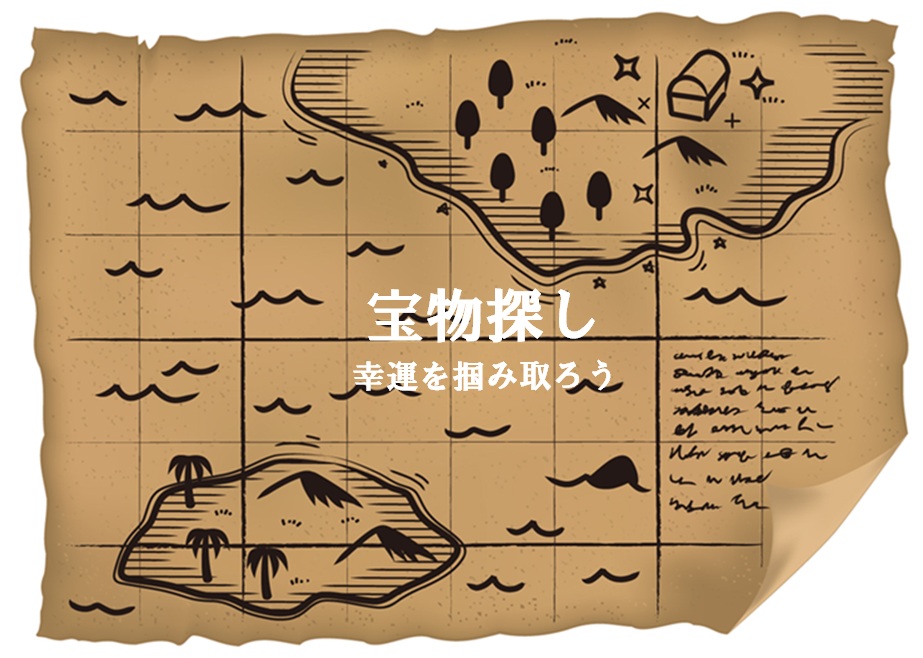 宝物探し
幸運を掴み取ろう